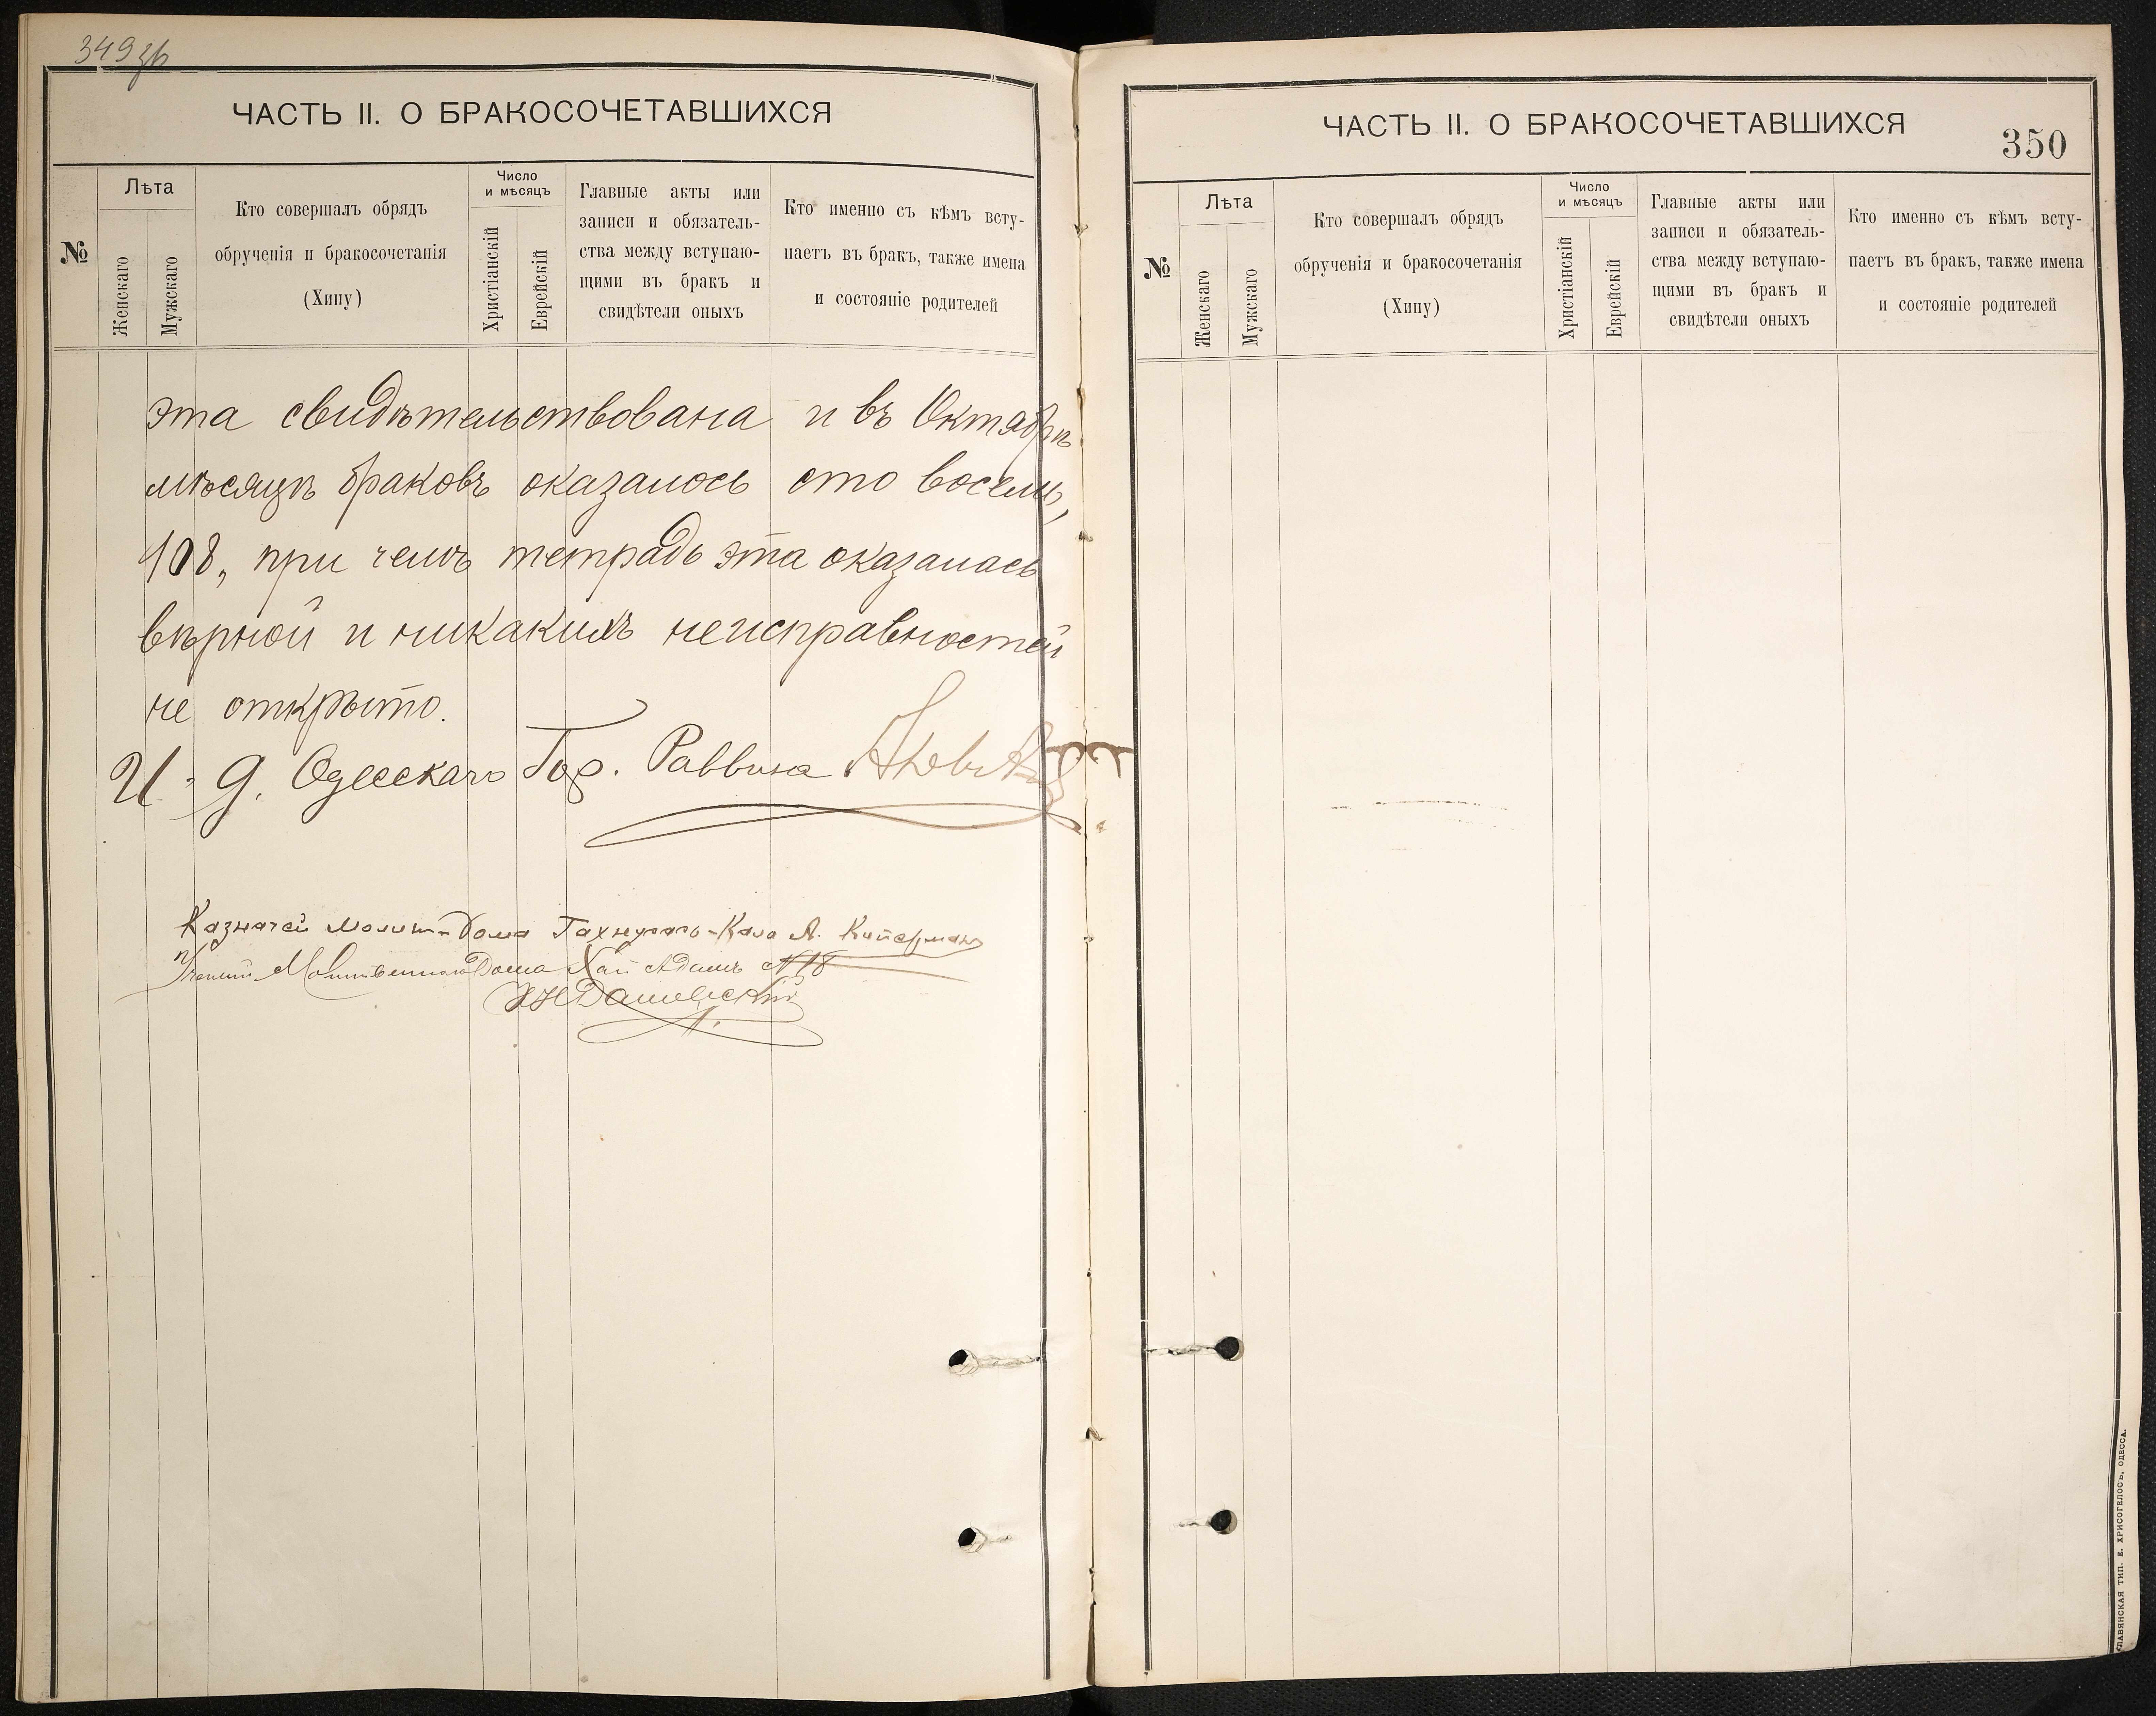 349 об
ЧАСТЬ II. О БРАКОСОЧЕТАВШИХСЯ
№
Лѣта
Женскаго
Мужскаго
Кто совершалъ обрядъ
обрученія и бракосочетанія
(Хипу)
Число
и мѣсяцъ
Христіанскій
Еврейскій
Главные акты или
записи и обязатель-
ства между вступаю-
щими въ бракъ и
свидѣтели оныхъ
Кто именно съ кѣмъ всту-
паетъ въ бракъ, также имена
и состояніе родителей
эта свидѣтельствована и въ Октябрѣ
мѣсяцѣ браковъ оказалось сто восемь,
108, при чемъ тетрадь эта оказалась
вѣрной и никакихъ неисправностей
не открыто.
И. д. Одесскаго Гор. Раввина
Казначей Молит-Дома
Ученый Молитвеннаго Дома Хай Адамъ №18
Дашевскій
ЧАСТЬ II. О БРАКОСОЧЕТАВШИХСЯ
350
№
Лѣта
Женскаго
Мужскаго
Кто совершалъ обрядъ
обрученія и бракосочетанія
(Хипу)
Число
и мѣсяцъ
Христіанскій
Еврейскій
Главные акты или
записи и обязатель-
ства между вступаю-
щими въ бракъ и
свидѣтели оныхъ
Кто именно съ кѣмъ всту-
паетъ въ бракъ, также имена
и состояніе родителей
СЛАВЯНСКАЯ ТИП. Е. ХРИСОГЕЛОСЪ, ОДЕССА.